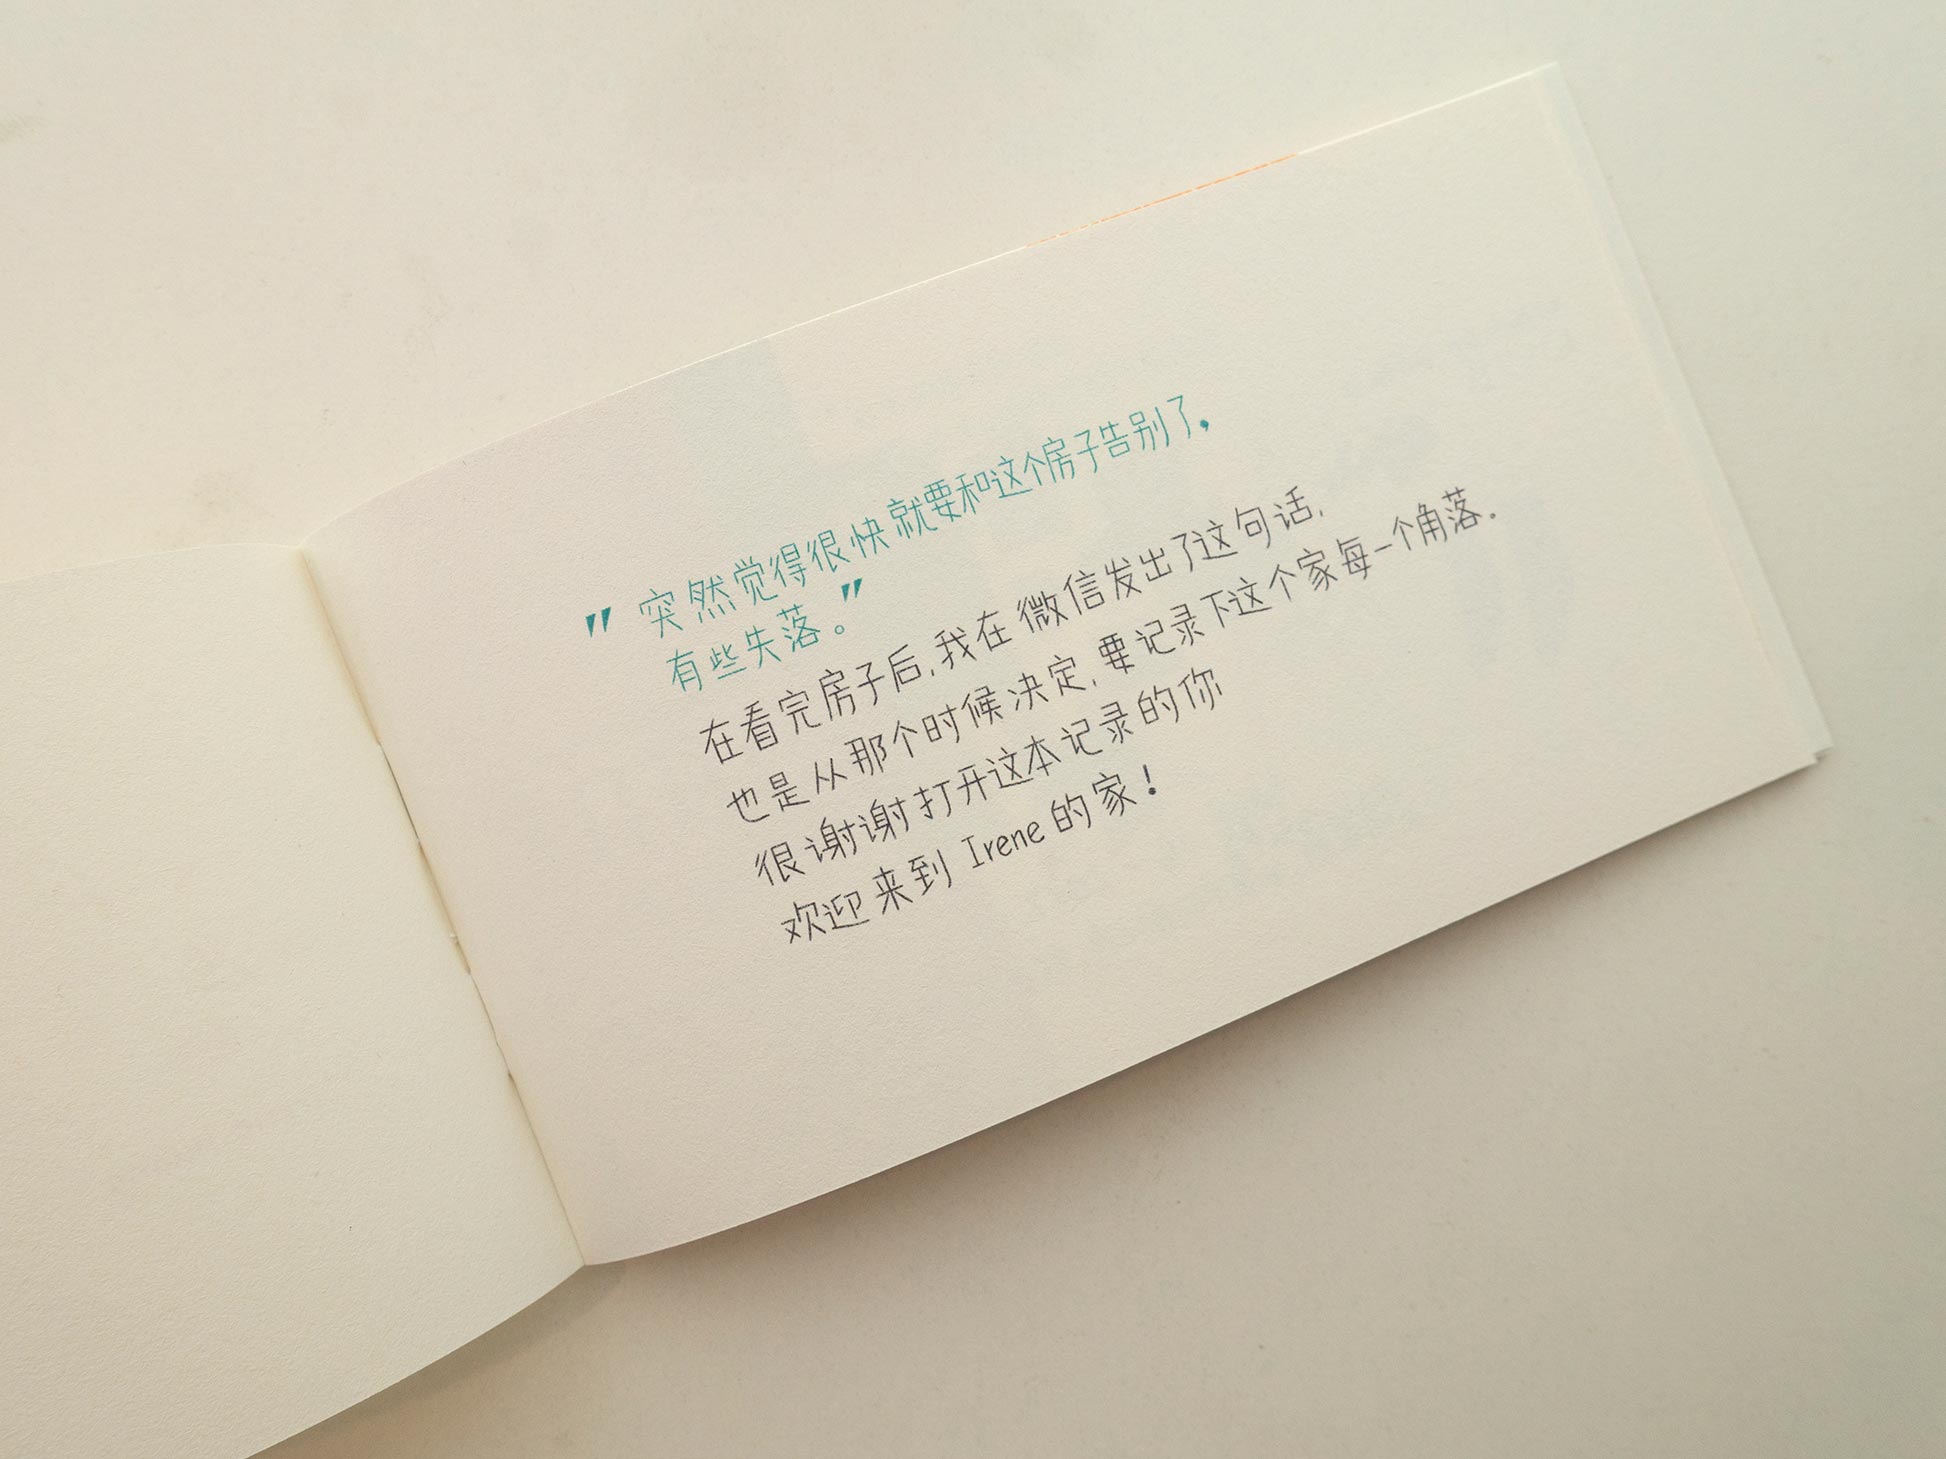 "突然觉得很快就要和这个房子告别了，
有些失落。"
在看完房子后,我在微信发出了这句话,
也是从那个时候决定,要记录下这个家每一个角落.
很谢谢打开这本记录的你
欢迎来到 Irene 的家!